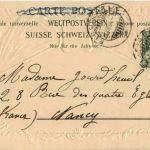 CARTE POSTALE
postale universelle WELTPOSTVEREIN
SUISSE SCHWEIZ SVIZZERA
Nur für die Adresse
Madame Jourdheuil
28 Rue des quatre Eglises
(France) Nancy